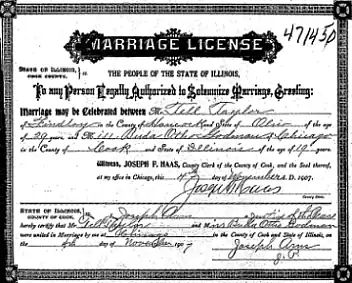 471450
MARRIAGE LICENSE
STATE OF ILLINOIS, COOK COUNTY. } ss. THE PEOPLE OF THE STATE OF ILLINOIS,
To any Person Legally Authorized to Solemnize Marriage, Greeting:
Marriage may be Celebrated between Mr. Tell Taylor
of Findlay in the County of Hancock and State of Ohio of the age
of 29 years and M iss Buda Otho Bodman of Chicago
in the County of Cook and State of Illinois of the age of 19 years
Witness, JOSEPH F. HAAS, County Clerk of the County of Cook, and the Seal thereof,
at my office in Chicago, this 4th day of November A. D. 1907.
Joseph F Haas
County Clerk
STATE OF ILLINOIS, COUNTY OF COOK. } ss. I, Joseph a Justice of the Peace
hereby certify that Mr. Tell Taylor and Miss Buda Bodman
were united in Marriage by me at Chicago in the County of Cook and State of Illinois, on
the 4th day of November 1907
Joseph
J.P.